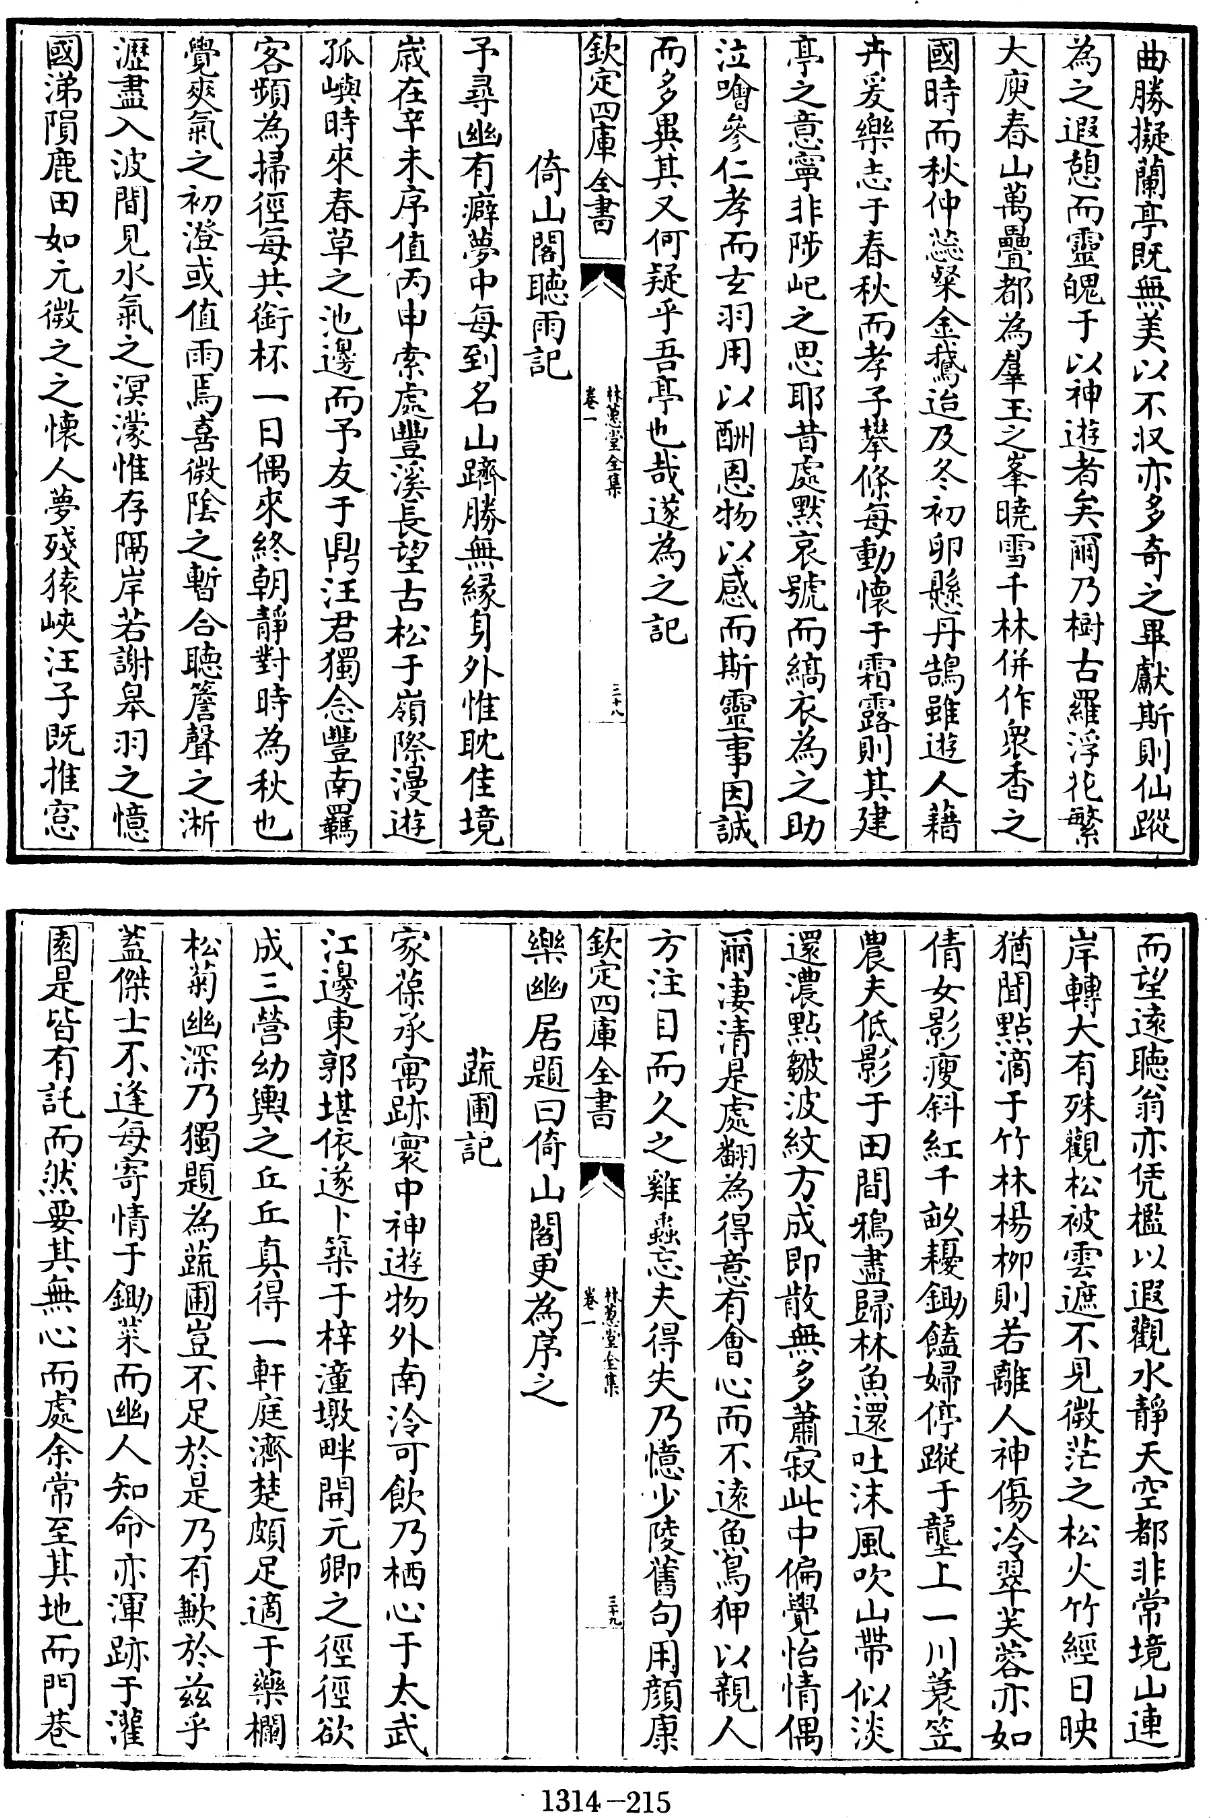 曲勝擬蘭亭既無美以不収亦多奇之畢獻斯則仙蹤
為之遐憩而靈魄于以神遊者矣爾乃樹古羅浮花繁
大庾春山萬疊都為羣玉之峯曉雪千林併作衆香之
國時而秋仲蕊粲金鵝迨及冬初卵懸丹鵠雖遊人藉
卉爰樂志于春秋而孝子攀條每動懷于霜露則其建
亭之意寧非陟屺之思耶昔處默哀號而縞衣為之助
泣噲參仁孝而玄羽用以酬恩物以感而斯靈事因誠
而多異其又何疑乎吾亭也哉遂為之記
欽定四庫全書
林蕙堂全集
卷一
三十八
倚山閣聽雨記
予尋幽有癖夢中每到名山躋勝無緣身外惟耽佳境
嵗在辛未序值丙申索處豐溪長望古松于嶺際漫遊
孤嶼時來春草之池邊而予友于鼎汪君獨念豐南羈
客頻為掃徑每共銜杯一日偶來終朝靜對時為秋也
覺爽氣之初澄或值雨焉喜微陰之暫合聽簷聲之淅
瀝盡入波間見水氣之溟濛惟存隔岸若謝皋羽之憶
國涕隕鹿田如元微之之懷人夢殘猿峽汪子既推窓
而望遠聽翁亦凭檻以遐觀水靜天空都非常境山連
岸轉大有殊觀松被雲遮不見微茫之松火竹經日映
猶聞點滴于竹林楊柳則若離人神傷冷翠芙蓉亦如
倩女影瘦斜紅千畝耰鋤饁婦停蹤于壟上一川蓑笠
農夫低影于田間鴉盡歸林魚還吐沫風吹山帶似淡
還濃點皺波紋方成即散無多蕭寂此中偏覺怡情偶
爾凄清是處翻為得意有會心而不遠魚鳥狎以親人
方注目而久之雞蟲忘夫得失乃憶少陵舊句用顔康
欽定四庫全書
林蕙堂全集
卷一
三十九
樂幽居題曰倚山閣更為序之
蔬圃記
家葆承寓跡寰中神遊物外南泠可飲乃栖心于太武
江邊東郭堪依遂卜築于梓潼墩畔開元卿之徑徑欲
成三營幼輿之丘丘真得一軒庭濟楚頗足適于藥欄
松菊幽深乃獨題為蔬圃豈不足於是乃有歉於兹乎
蓋傑士不逢每寄情于鋤菜而幽人知命亦渾跡于灌
園是皆有託而然要其無心而處余常至其地而門巷
1314－215